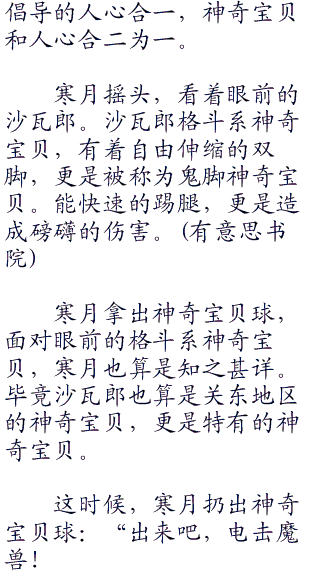 倡导的人心合一，神奇宝贝
和人心合二为一。
寒月摇头，看着眼前的
沙瓦郎。沙瓦郎格斗系神奇
宝贝，有着自由伸缩的双
脚，更是被称为鬼脚神奇宝
贝。能快速的踢腿，更是造
成磅礴的伤害。（有意思书
院）
寒月拿出神奇宝贝球，
面对眼前的格斗系神奇宝
贝，寒月也算是知之甚详。
毕竟沙瓦郎也算是关东地区
的神奇宝贝，更是特有的神
奇宝贝。
这时候，寒月扔出神奇
宝贝球：“出来吧，电击魔
兽！